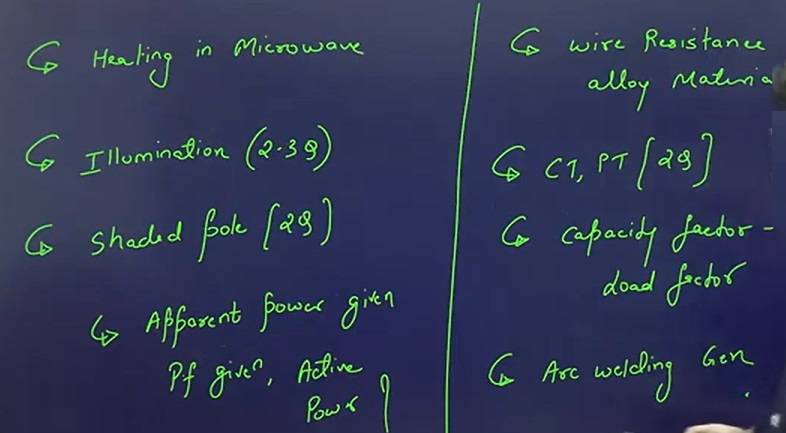 Heating in Microwave
Illumination (2-3Q)
Shaded pole [2Q]
Apparent power given
Pf given, Active
Power
wire Resistance
alloy Materia
CT, PT [2Q]
Capacity factor -
Load factor
Arc welding Gen